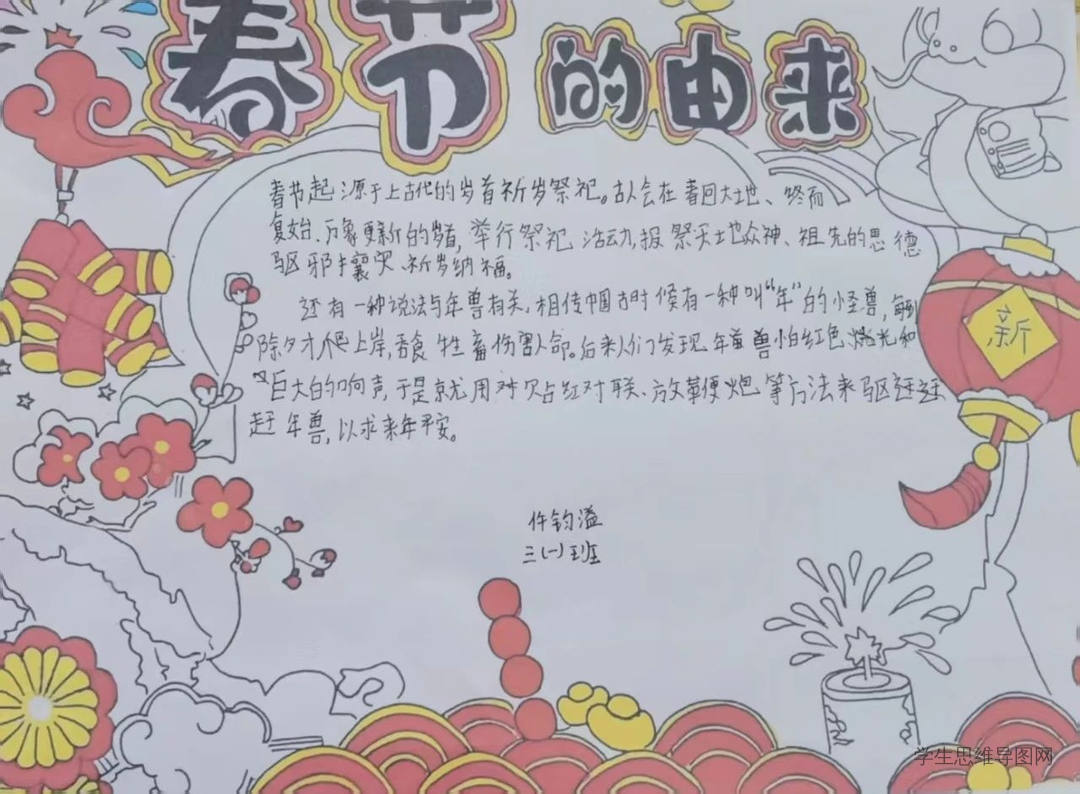 春节的由来
春节起源于上古代的岁首祈岁祭祀。古人会在春回大地、终而
复始、万象更新的岁首,举行祭祀活动,报祭天地众神、祖先的恩德
驱邪攘灾、祈岁纳福。
还有一种说法与年兽有关,相传中国古时候有一种叫“年”的怪兽,每到
除夕才爬上岸,吞食牲畜伤害人命。后来人们发现年兽怕红色、火光和
巨大的响声,于是就用对贴红对联、放鞭炮等方法来驱
赶年兽,以求来年平安。
新
仵钧溢
三(一)班
学生思维导图网